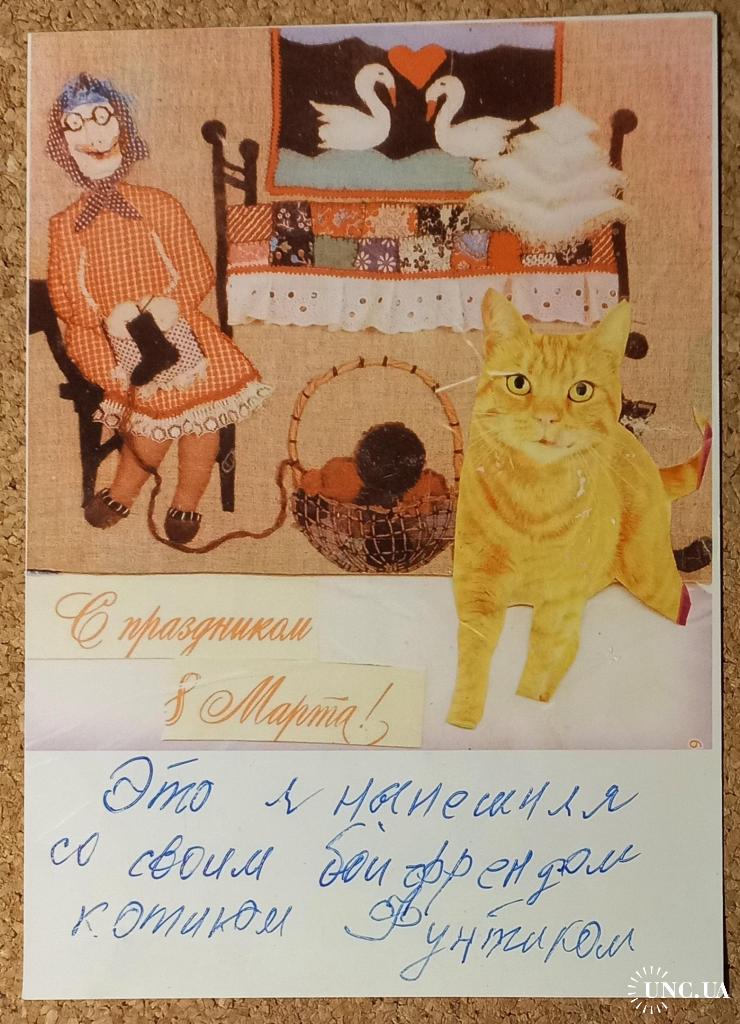 С праздником
8 Марта!
Это я нынешняя
со своим бойфрендом
котиком Фунтиком
UNC.UA